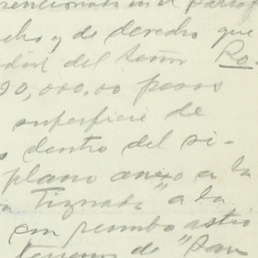 mencionado en el párraf
cho y de derecho que
del señor Ro
90,000.00 pesos
superficie de
dentro del si-
plano anexo a la
Tiznada" a la
con rumbo astro
terreno de "San